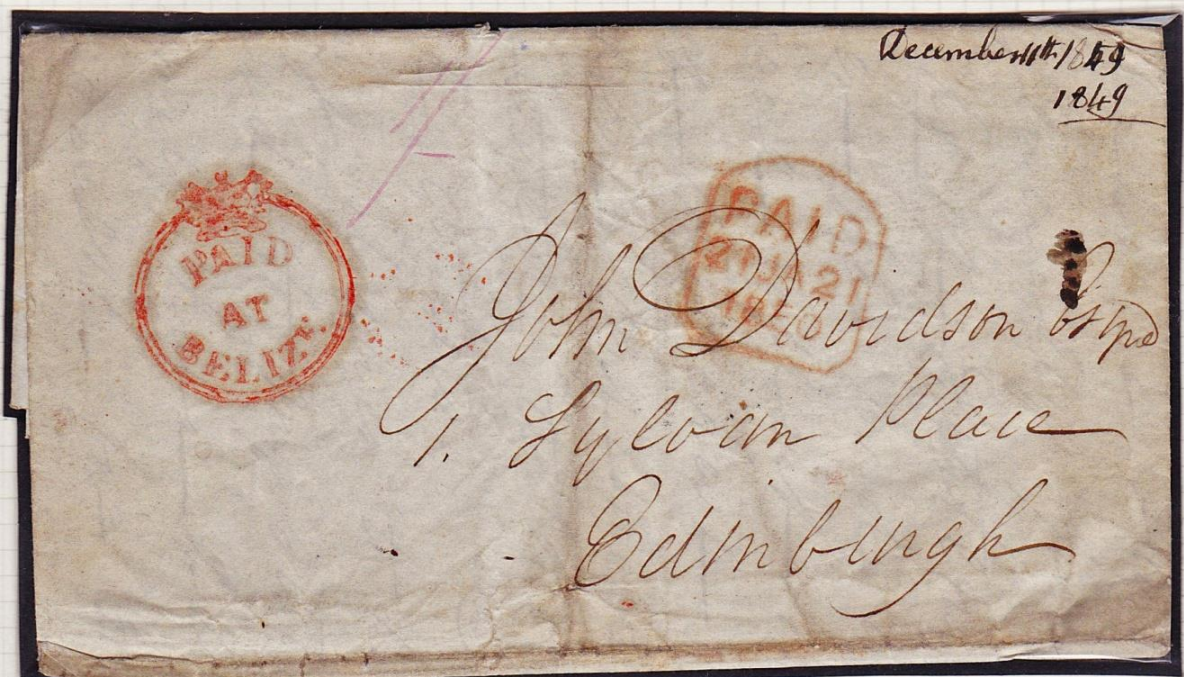 December 11th 1849
1849
PAID
AT
BELIZE.
PAID
21 JA 21
1850
John Davidson Esqre
1. Sylvan Place
Edinburgh